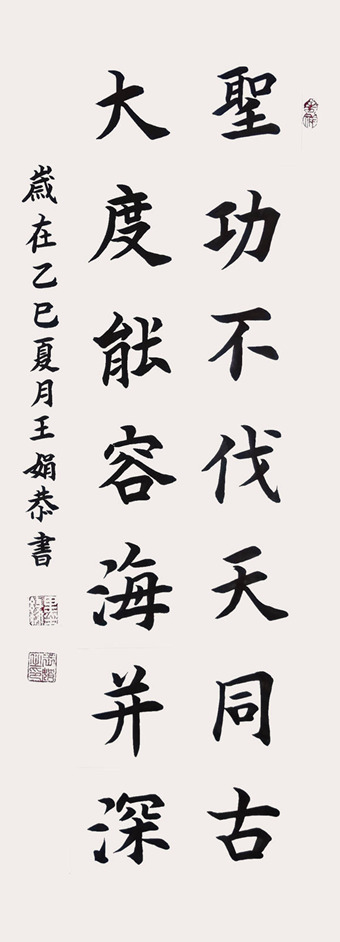 聖功不伐天同古
大度能容海并深
歲在乙巳夏月王娟恭書